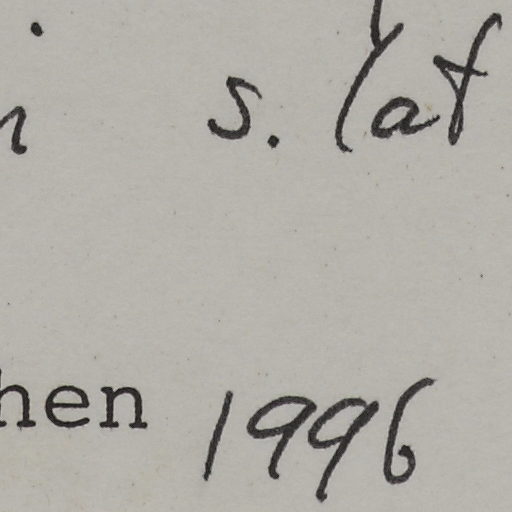 s. lat
hen 1996